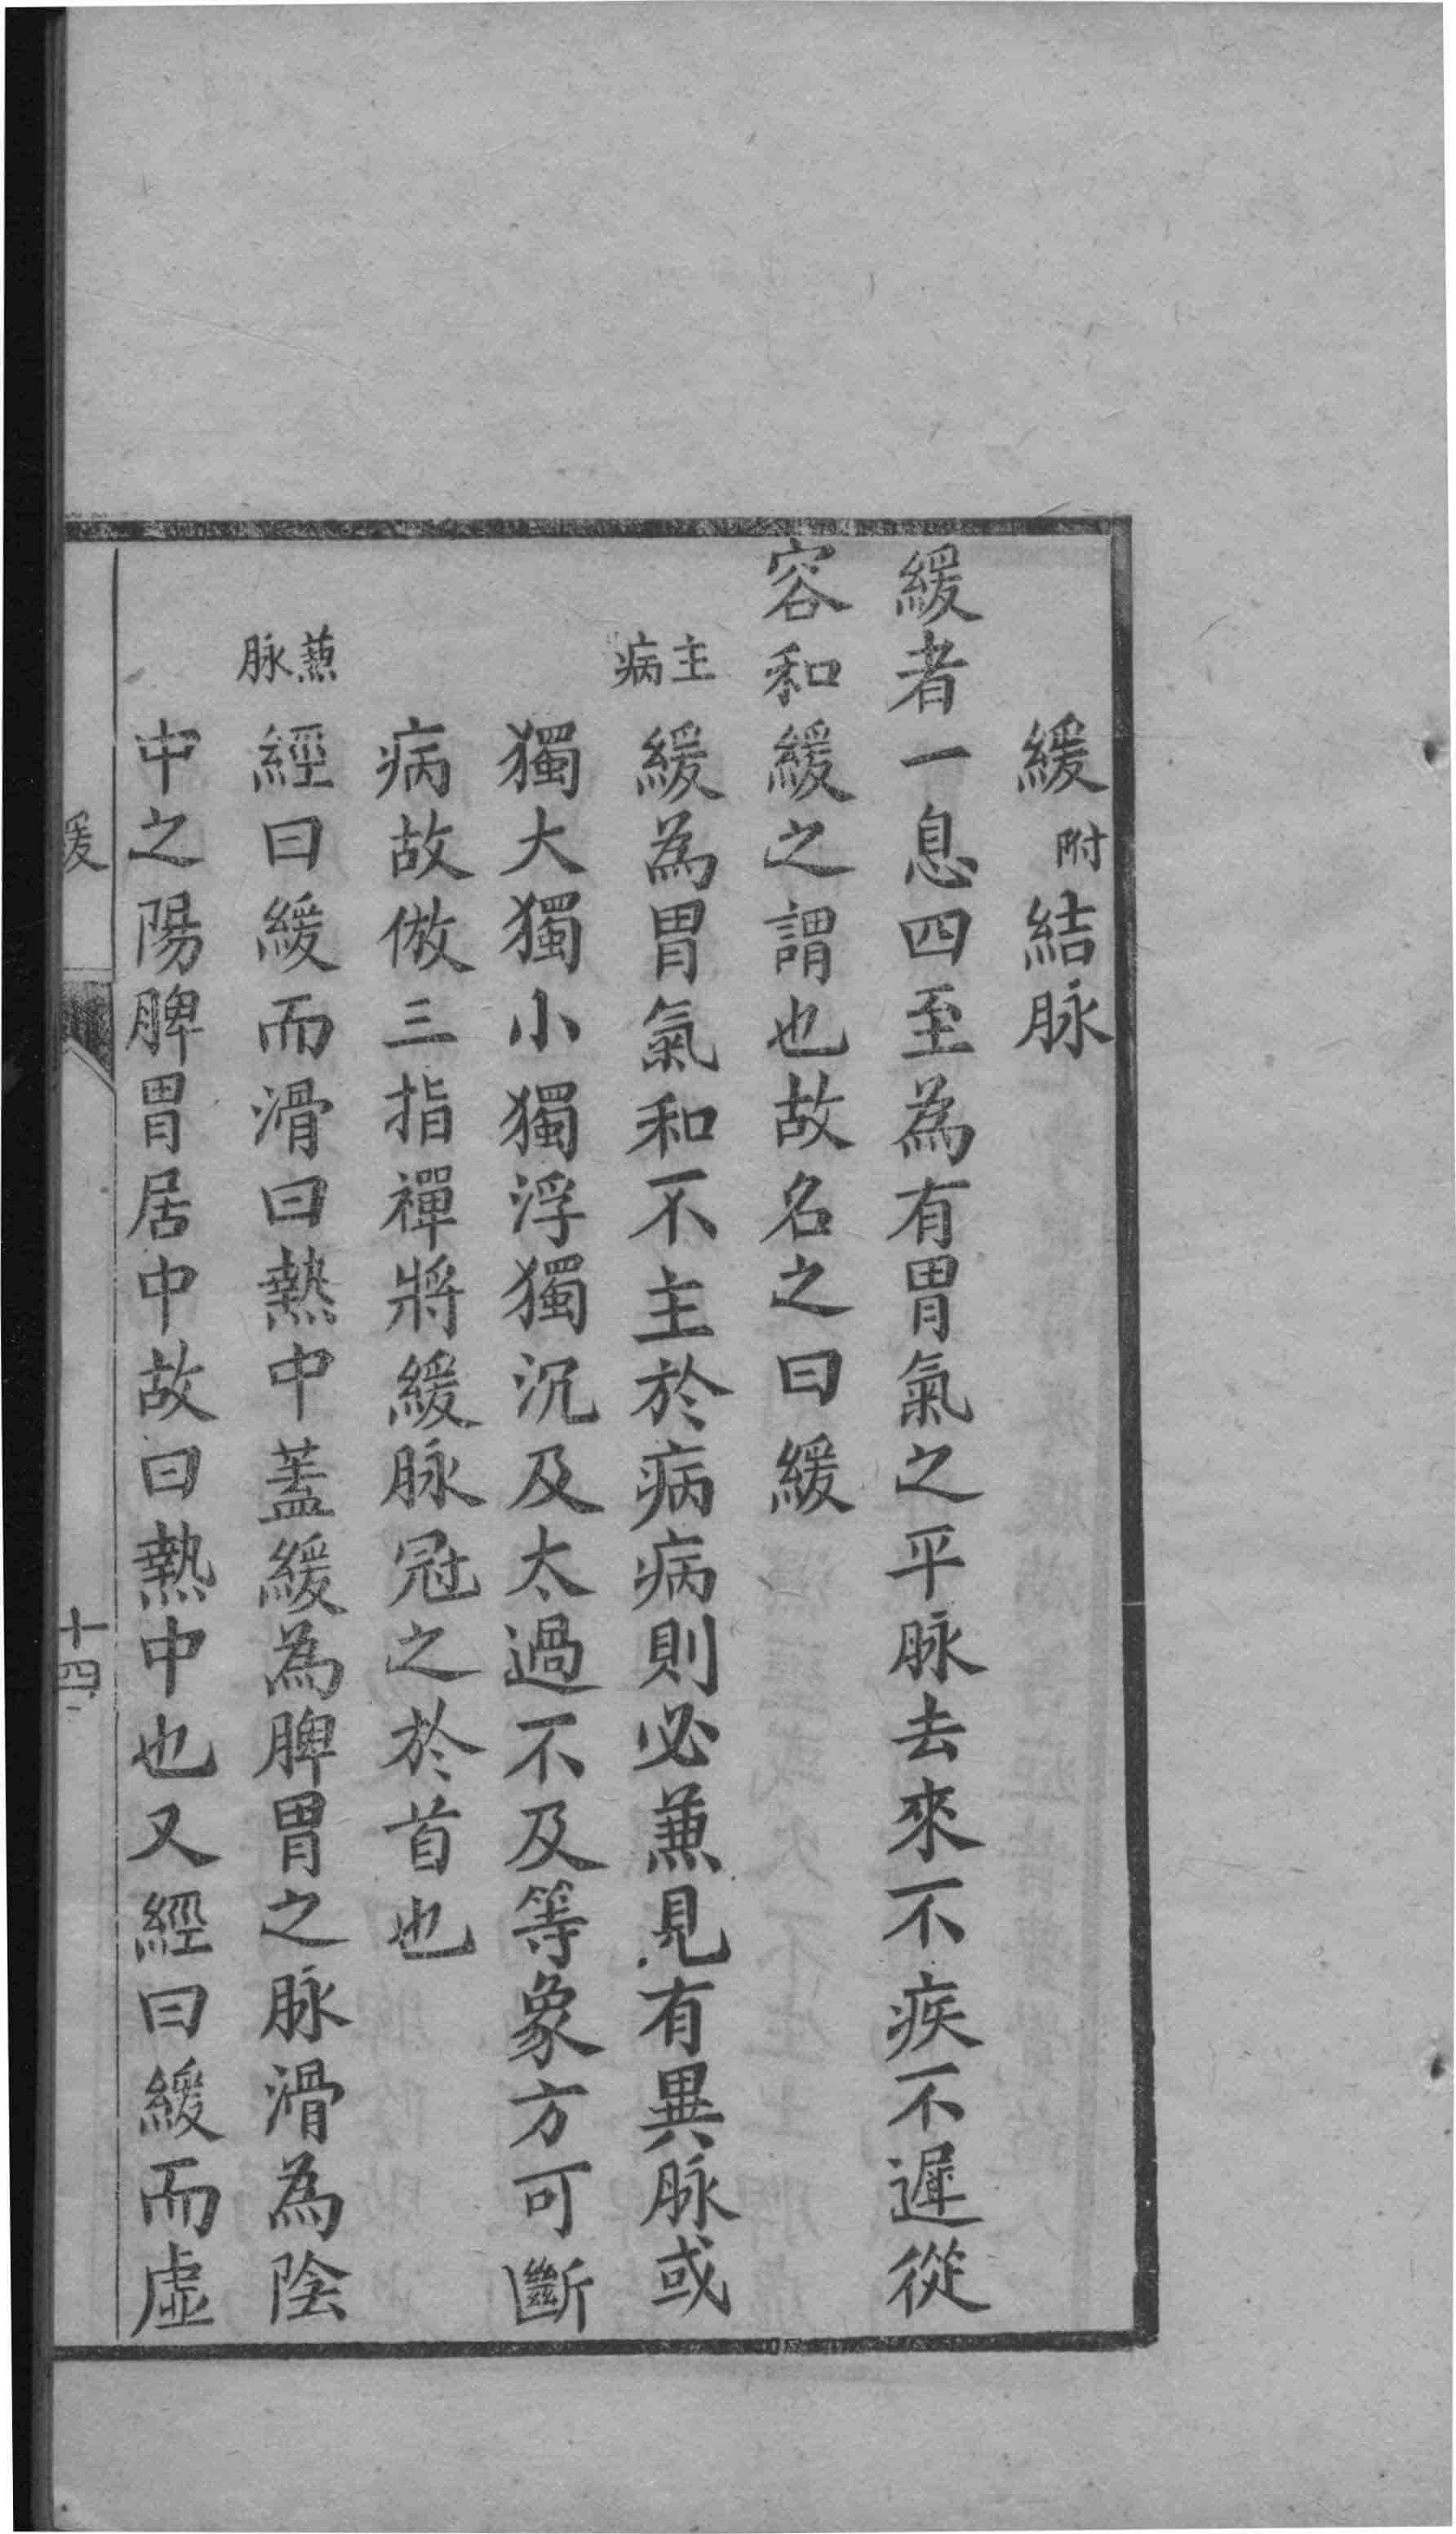 緩附結脉
緩者一息四至為有胃氣之平脉去來不疾不遲從
容和緩之謂也故名之曰緩
主病緩為胃氣和不主於病病則必蒹見有異脉或
獨大獨小獨浮獨沉及太過不及等象方可斷
病故倣三指禪將緩脉冠之於首也
蒹脉經曰緩而滑曰熱中蓋緩為脾胃之脉滑為陰
中之陽脾胃居中故曰熱中也又經曰緩而虛
緩
十四